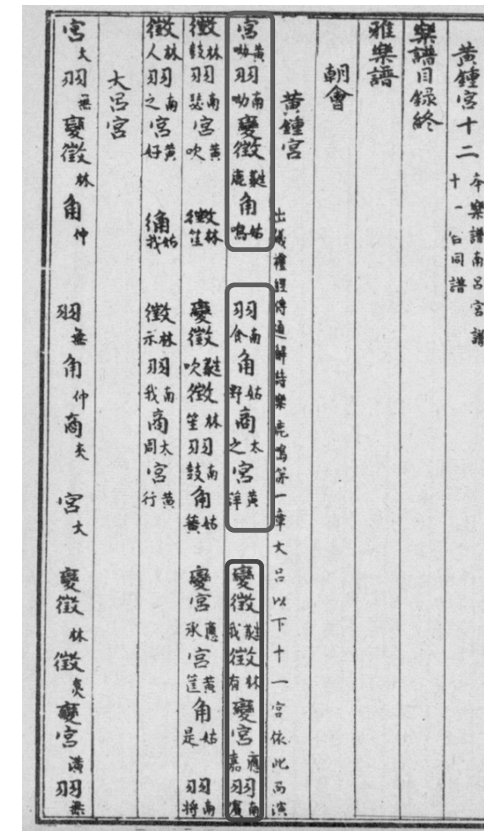 黃鍾宮十二 夲樂譜南呂宮譜
十一宮同譜
樂譜目錄終
雅樂譜
朝會
黃鍾宮 出儀禮經傳通解詩樂鹿鳴第一章大呂以下十一宮依此而演
宮黃呦羽南呦變徵蕤鹿角姑鳴 羽南食角姑野商太之宮黃苹 變徵蕤我徵林有變宮應嘉羽南賓
徵林鼓羽南瑟宮黃吹徵林笙 變徵蕤吹徵林笙羽南鼓角姑簧 變宮應承宮黃筐角姑是羽南將
徵林人羽南之宮黃好角姑我 徵林示羽南我商太周宮黃行
大呂宮
宮大羽無變徵林角仲 羽無角仲商夾宮大 變徵林徵夷變宮潢羽無